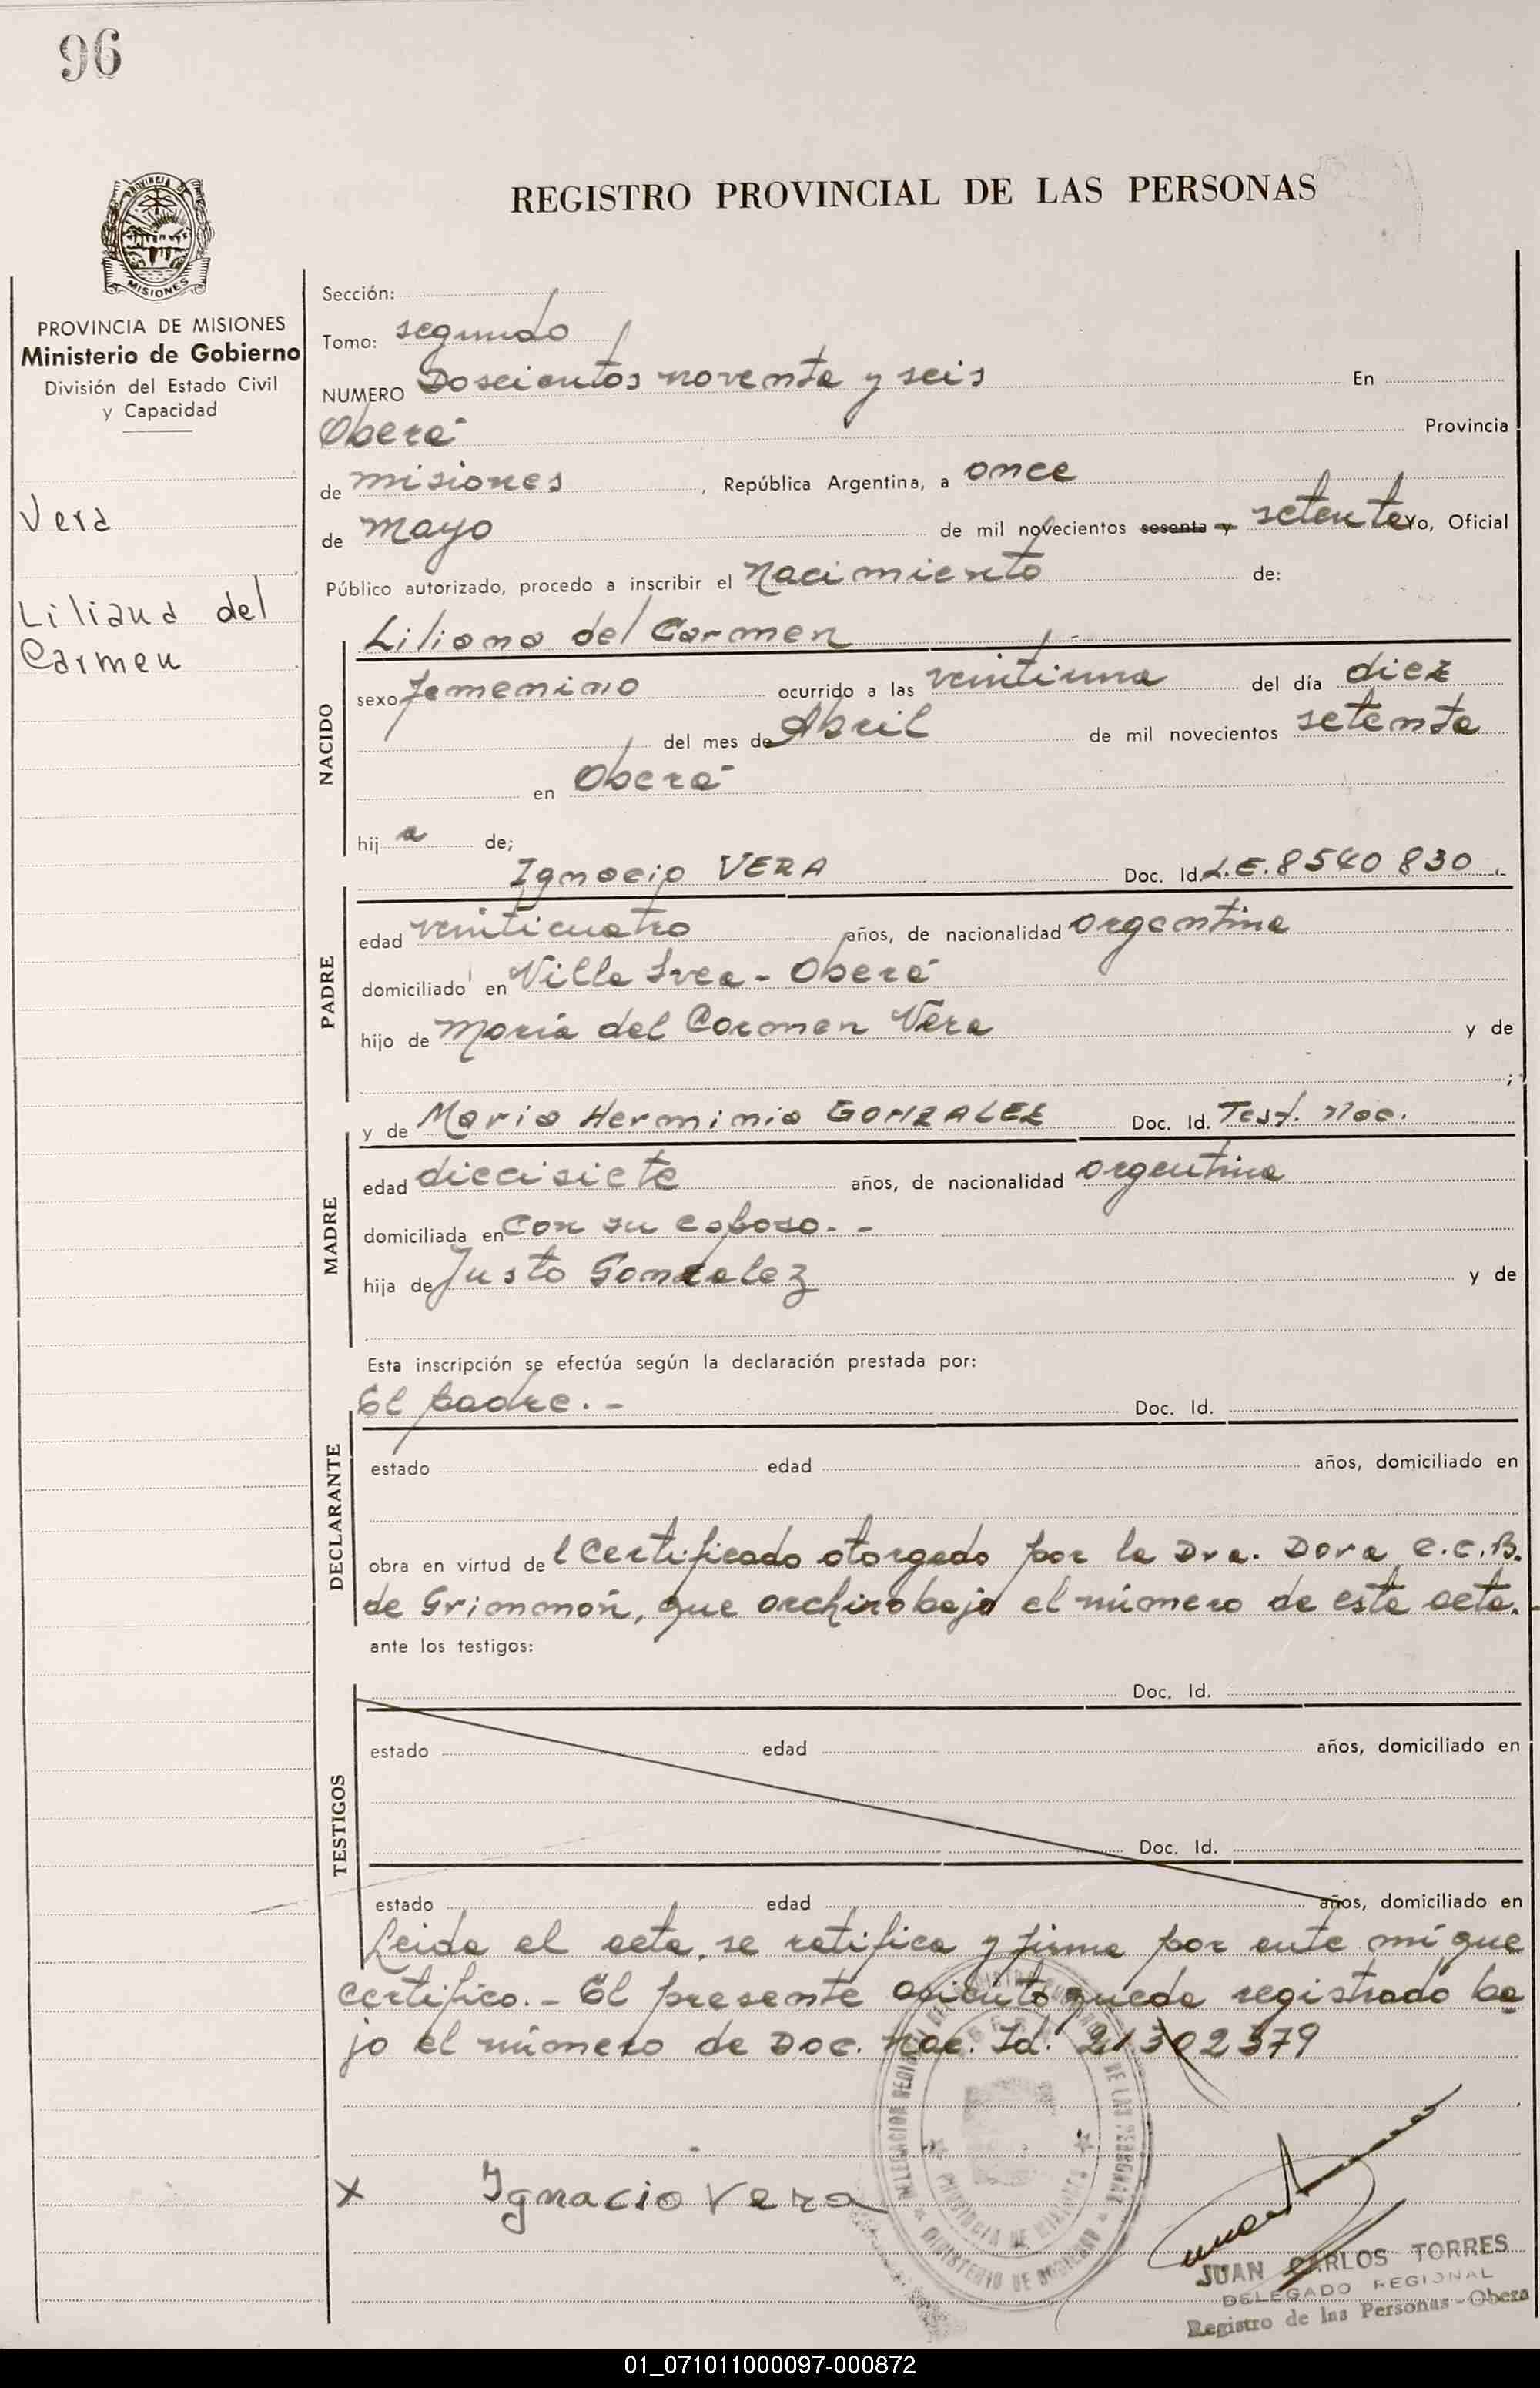 96
REGISTRO PROVINCIAL DE LAS PERSONAS
PROVINCIA DE
MISIONES
PROVINCIA DE MISIONES
Ministerio de Gobierno
División del Estado Civil
y Capacidad
Vera
Liliana del
Carmen
Sección:
Tomo: segundo
NUMERO Doscientos noventa y seis En
Oberá Provincia
de misiones, República Argentina, a once
de mayo de mil novecientos sesenta y setenta yo, Oficial
Público autorizado, procedo a inscribir el nacimiento de:
Liliana del Carmen
NACIDO
sexo femenino ocurrido a las veintiuna del día diez
del mes de Abril de mil novecientos setenta
en Oberá
hija de;
Ignacio VERA Doc. Id. L.E. 8540830
PADRE
edad veinticuatro años, de nacionalidad argentina
domiciliado en Villa Svea - Oberá
hijo de María del Carmen Vera y de
;
y de Maria Herminia GONZALEZ Doc. Id. Test. Nac.
MADRE
edad diecisiete años, de nacionalidad argentina
domiciliada en con su esposo. -
hija de Justo Gonzalez y de
Esta inscripción se efectúa según la declaración prestada por:
El padre. - Doc. Id.
DECLARANTE
estado edad años, domiciliado en
obra en virtud del Certificado otorgado por la Dra. Dora C.C.B.
de Grimmon, que archivo bajo el número de esta acta.
ante los testigos:
Doc. Id.
TESTIGOS
estado edad años, domiciliado en
Doc. Id.
estado edad años, domiciliado en
Leida el acta, se ratifica y firma por ante mí que
certifico. - El presente asiento queda registrado ba
jo el número de Doc. Nac. Id. 21302379
x Ignacio Vera
DE LAS PERSONAS
PROVINCIA DE MISIONES
MINISTERIO DE GOBIERNO
JUAN CARLOS TORRES
DELEGADO REGIONAL
Registro de las Personas - Obera
01_071011000097-000872